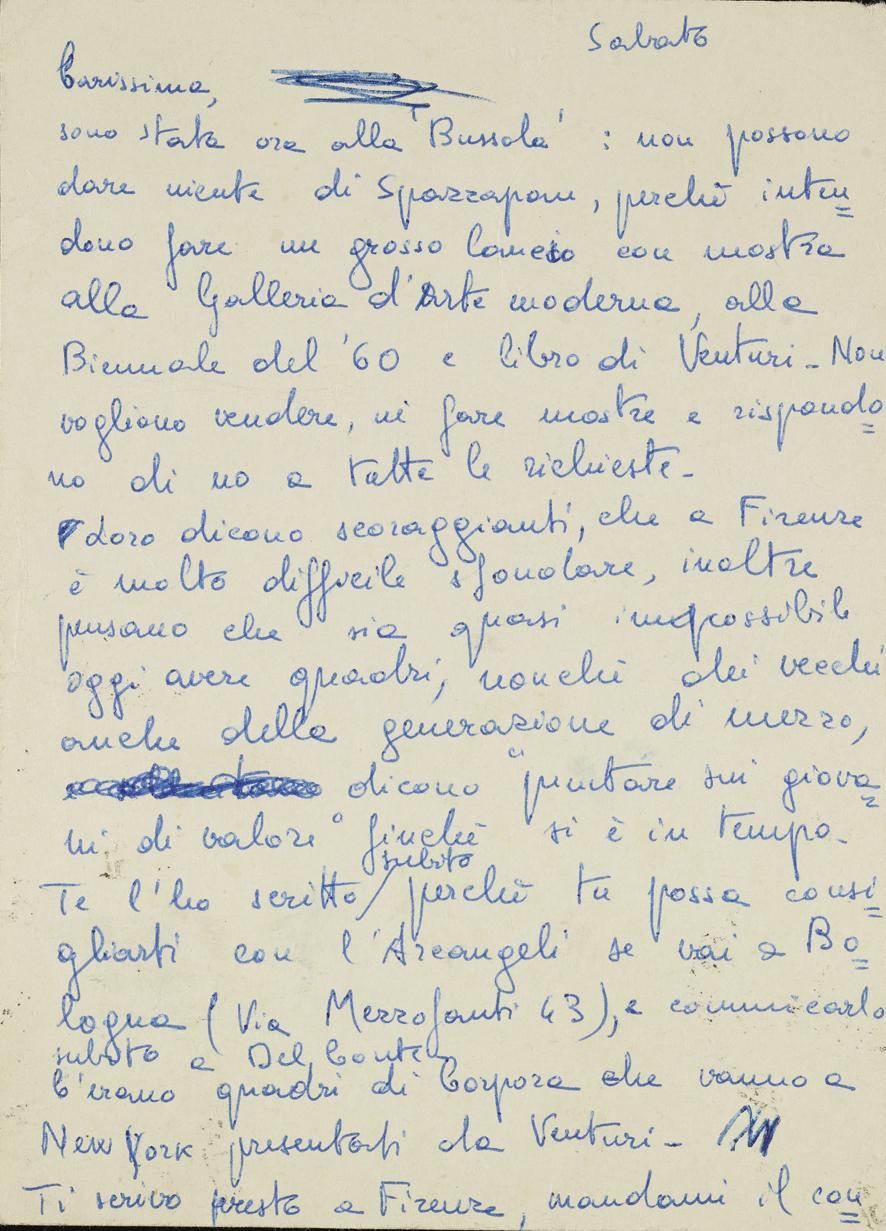 Sabato
Carissima,
sono stata ora alla 'Bussola' : non possono
dare niente di Spazzapan, perchè inten=
dono fare un grosso lancio con mostra
alla Galleria d'Arte moderna, alla
Biennale del '60 e libro di Venturi - Non
vogliono vendere, nè fare mostre e rispondo=
no di no a tutte le richieste -
Loro dicono scoraggianti, che a Firenze
è molto difficile sfondare, inoltre
pensano che sia quasi impossibile
oggi avere quadri, nonchè dei vecchi
anche della generazione di mezzo,
dicono "puntare sui giova=
ni di valore" finchè si è in tempo -
Te l'ho scritto / subito perchè tu possa consi=
gliarti con l'Arcangeli se vai a Bo=
logna (Via Mezzofanti 43), e comunicarlo
subito a Del Conte -
C'erano quadri di Corpora che vanno a
New York presentati da Venturi -
Ti scrivo presto a Firenze, mandami il con=